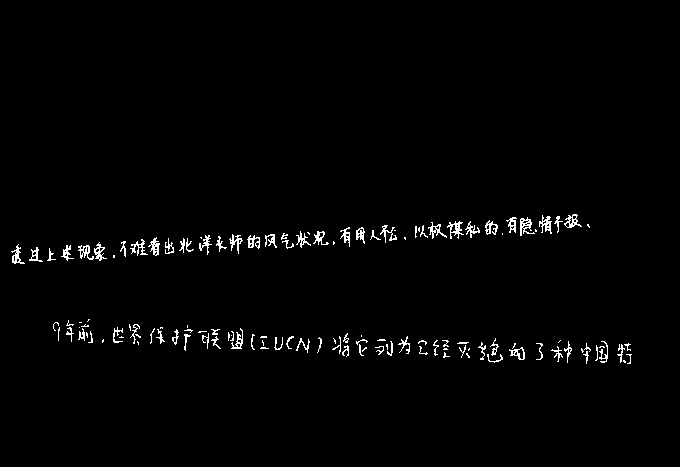 透过上述现象,不难看出北洋水师的风气状况,有用人私、以权谋私的,有隐情不报、
9年前,世界保护联盟(IUCN)将它列为已经灭绝的3种中国特